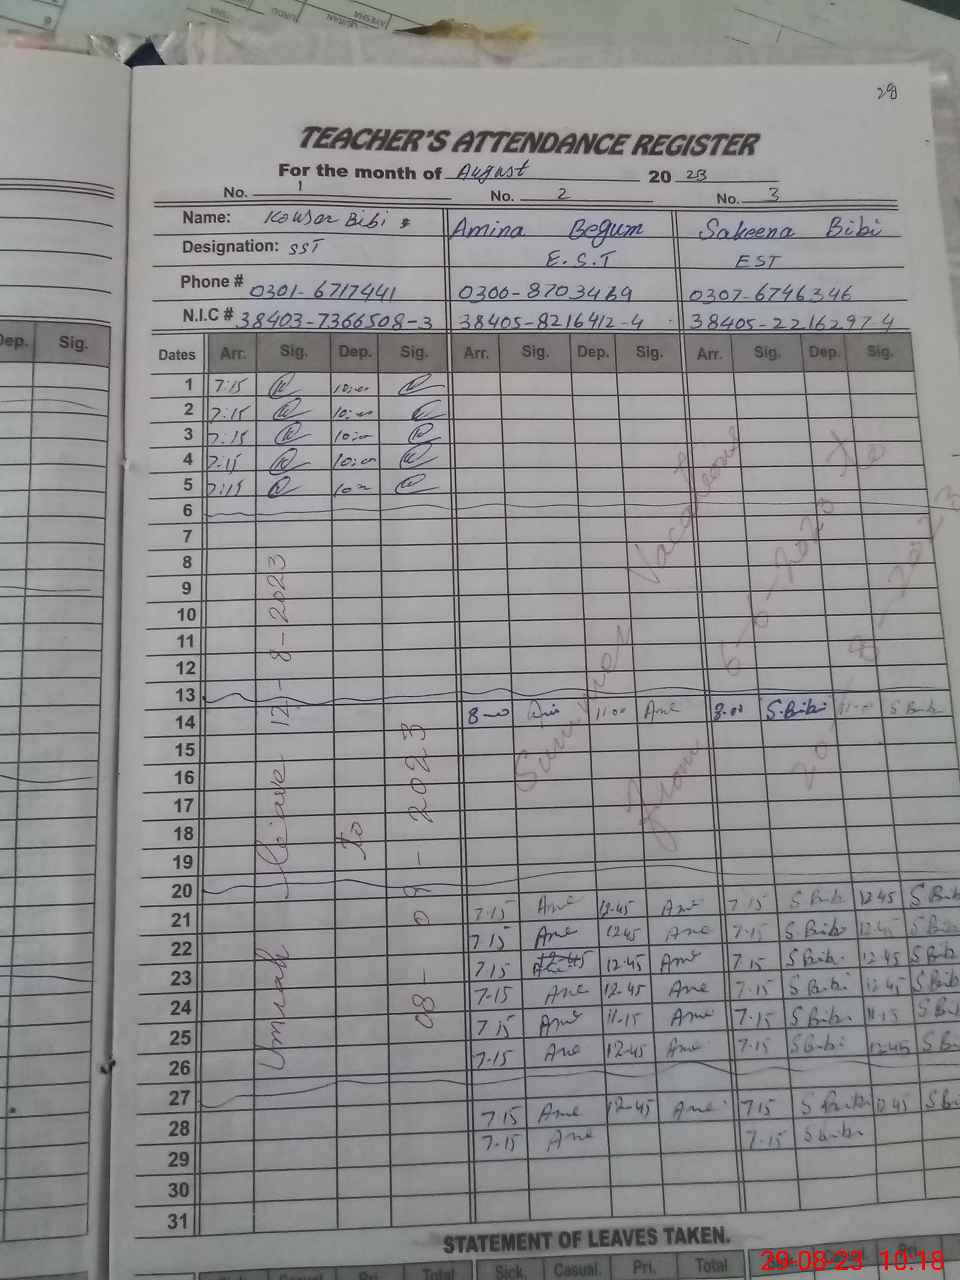 28
TEACHER'S ATTENDANCE REGISTER
For the month of August 20 23
No. 1 No. 2 No. 3
Name: Kousar Bibi Amina Begum Sakeena Bibi
Designation: SST E.S.T EST
Phone # 0301-6717441 0300-8703469 0307-6746346
N.I.C # 38403-7366508-3 38405-8216412-4 38405-2216297-4
Dep. Sig.
Dates Arr. Sig. Dep. Sig. Arr. Sig. Dep. Sig. Arr. Sig. Dep. Sig.
1 7:15 10:00
2 7:15 10:00
3 7:15 10:00
4 7:15 10:00
5 7:15 10:00
6
7
8
9
10
11
12
13
14 8-00 11:00 Ame 8.00 S.Bibi 11-00 S Bibi
15
16
17
18
19
20
21 7.15 Ame 12.45 Ame 7.15 S Bibi 12.45 S Bibi
22 7.15 Ame 12.45 Ame 7.15 S Bibi 12.45 S Bibi
23 7.15 12.45 Ame 7.15 S Bibi 12.45 S Bibi
24 7-15 Ame 12-45 Ame 7.15 S Bibi 12.45 S Bibi
25 7.15 Ame 11-15 Ame 7.15 S Bibi 11-15 S Bibi
26 7-15 Ame 12-45 Ame 7.15 S Bibi 12.45 S Bibi
27
28 7.15 Ame 12-45 Ame 7.15 S Bibi 12.45 S Bibi
29 7.15 Ame 7.15 S Bibi
30
31
Umrah Leave 12-8-2023
To
08-09-2023
Summer Vacations
From 6-6-2023 To
20-8-2023
STATEMENT OF LEAVES TAKEN.
Casual Pri. Total Sick. Casual. Pri. Total Pri.
29-08-23 10:18